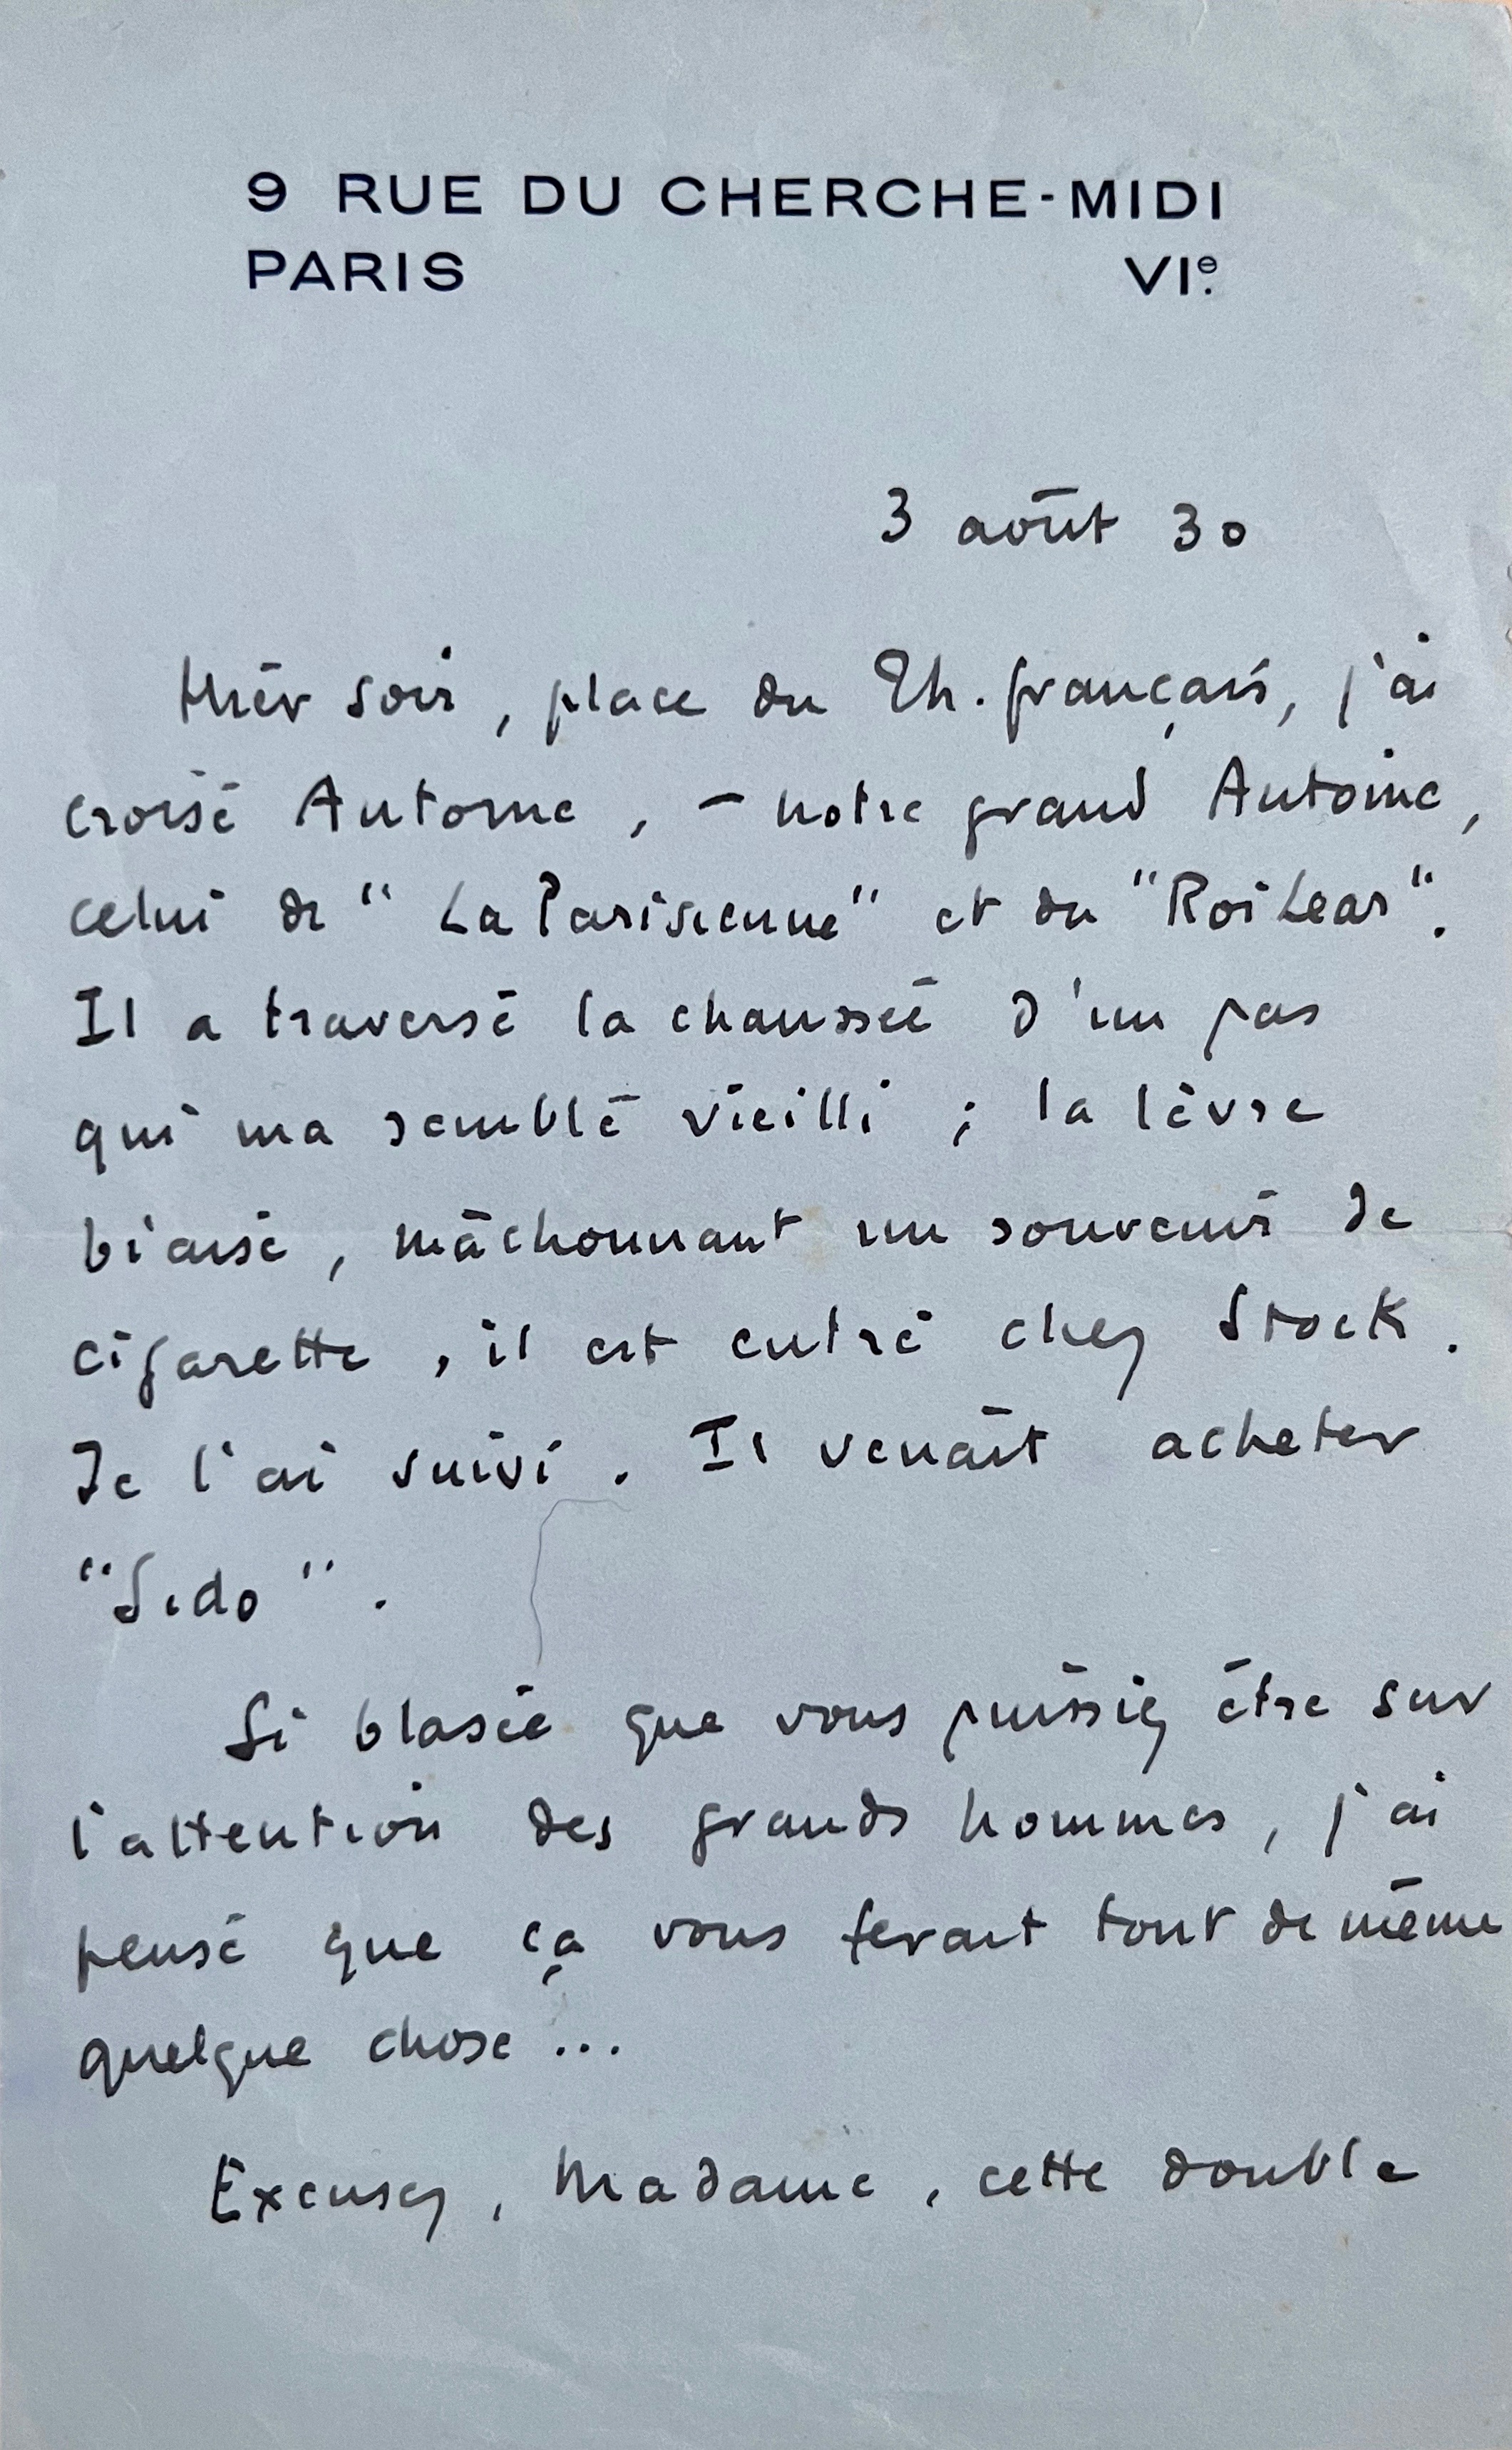 9 RUE DU CHERCHE-MIDI
PARIS VIe.
3 août 30
Hier soir, place du Th. français, j'ai
croisé Antoine, – notre grand Antoine,
celui de "La Parisienne" et du "Roi Lear".
Il a traversé la chaussée d'un pas
qui m'a semblé vieilli ; la lèvre
biaisé, mâchonnant un souvenir de
cigarette, il est entré chez Stock.
Je l'ai suivi. Il venait acheter
"Sido".
Si blasée que vous puissiez être sur
l'attention des grands hommes, j'ai
pensé que ça vous ferait tout de même
quelque chose...
Excusez, Madame, cette double